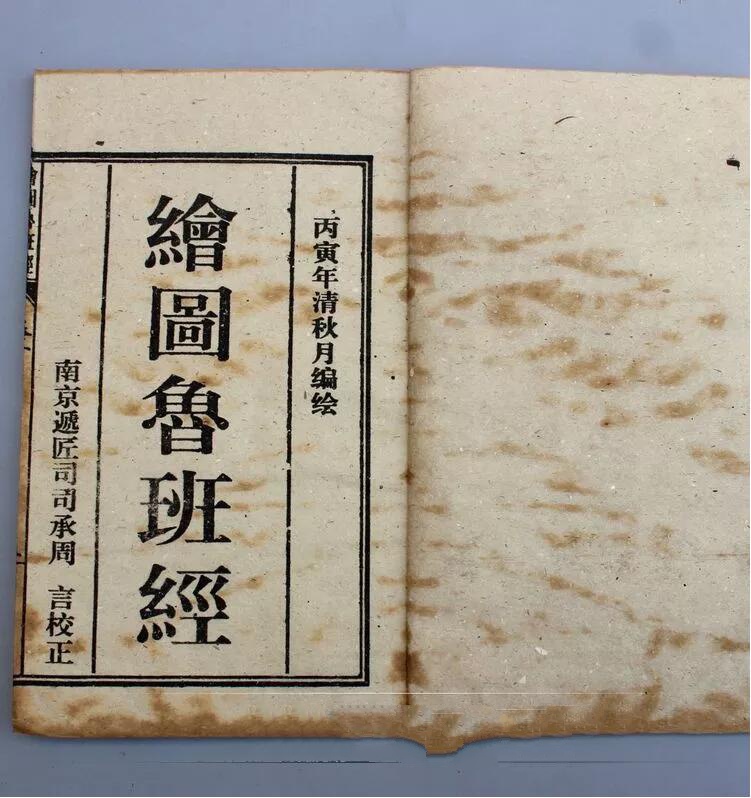 丙寅年清秋月编绘
繪圖魯班經
南京遞匠司司承周 言校正
繪圖魯班經